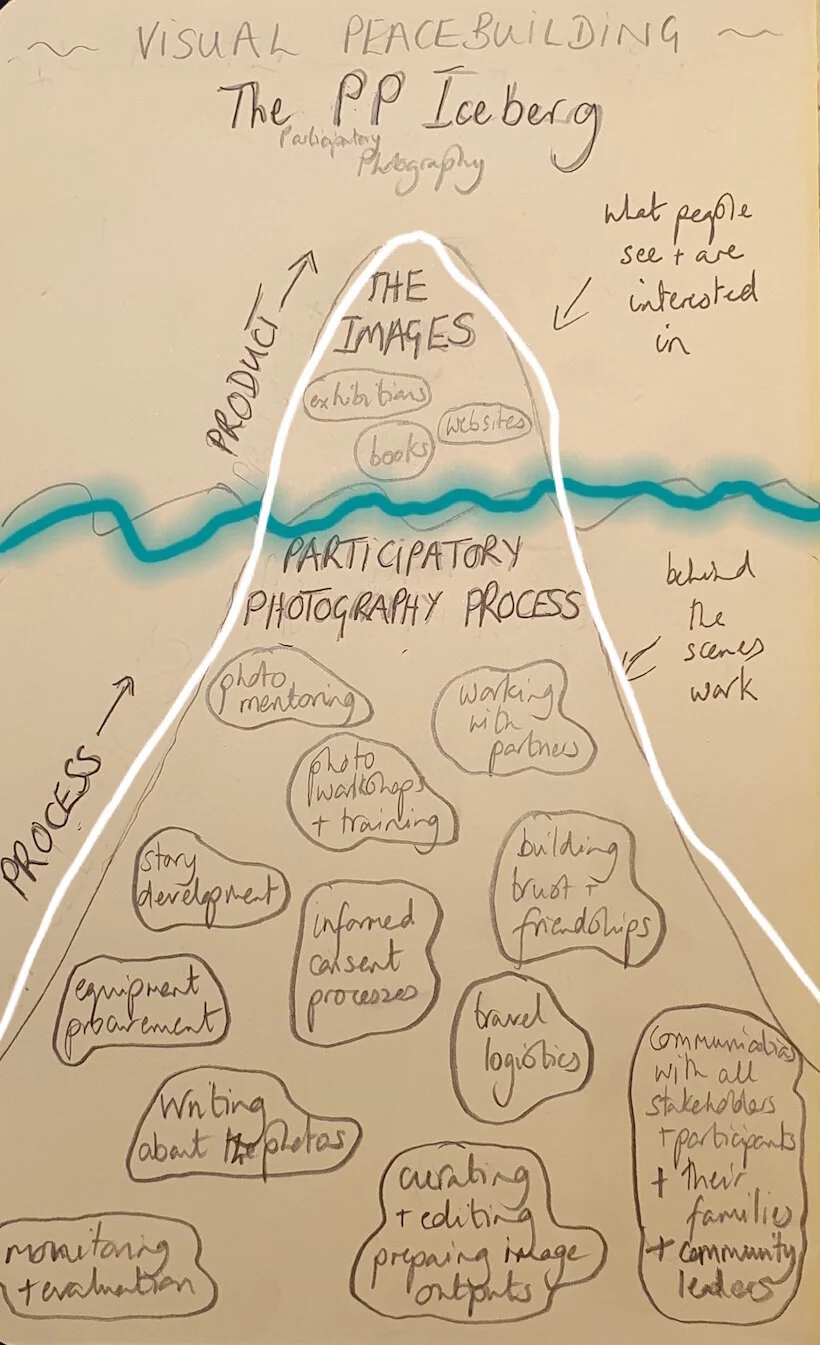 ~ VISUAL PEACEBUILDING ~
The PP Iceberg
Participatory
Photography
what people
see + are
interested
in
PRODUCT →
THE
IMAGES
exhibitions
websites
books
PARTICIPATORY
PHOTOGRAPHY PROCESS
behind
the
scenes
work
PROCESS →
photo
mentoring
working
with
partners
photo
workshops
+ training
story
development
building
trust +
friendships
informed
consent
processes
equipment
procurement
travel
logistics
communication
with all
stakeholders
+ participants
+ their
families
+ community
leaders
Writing
about the photos
curating
+ editing
preparing image
outputs
monitoring
+ evaluation